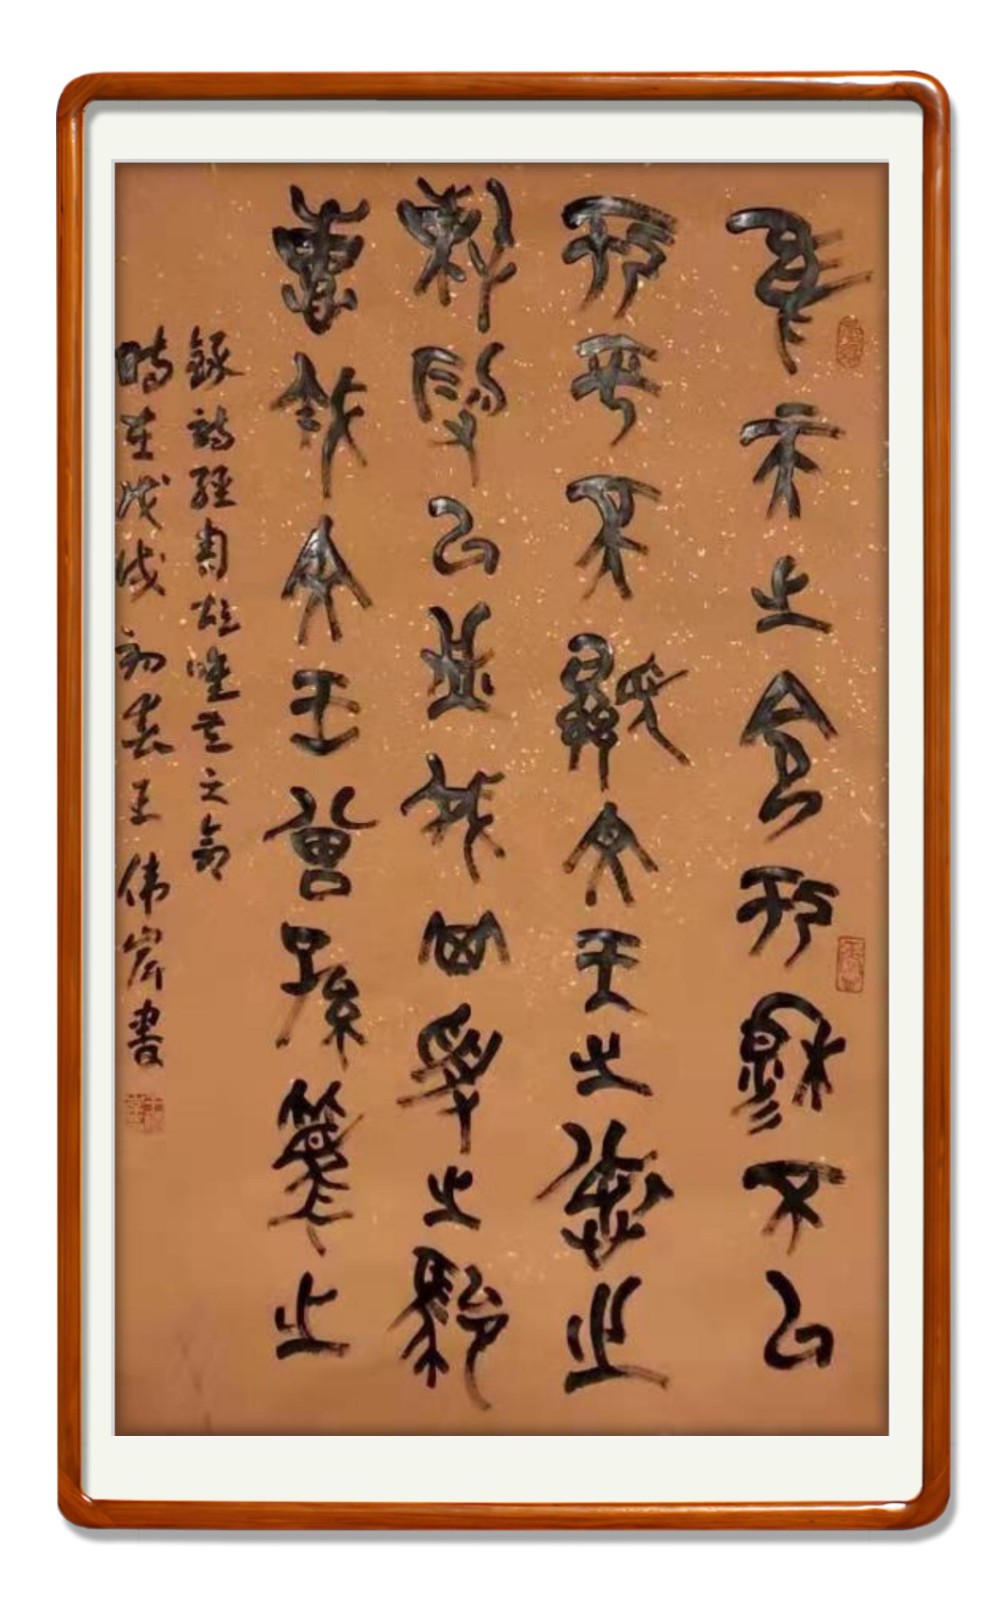 隹天之命於穆不已
於乎不顯文王之德之
純假以溢我其收之駿
惠我文王曾孫篤之
錄詩經周頌唯天之命
時在戊戌初春王伟岸書